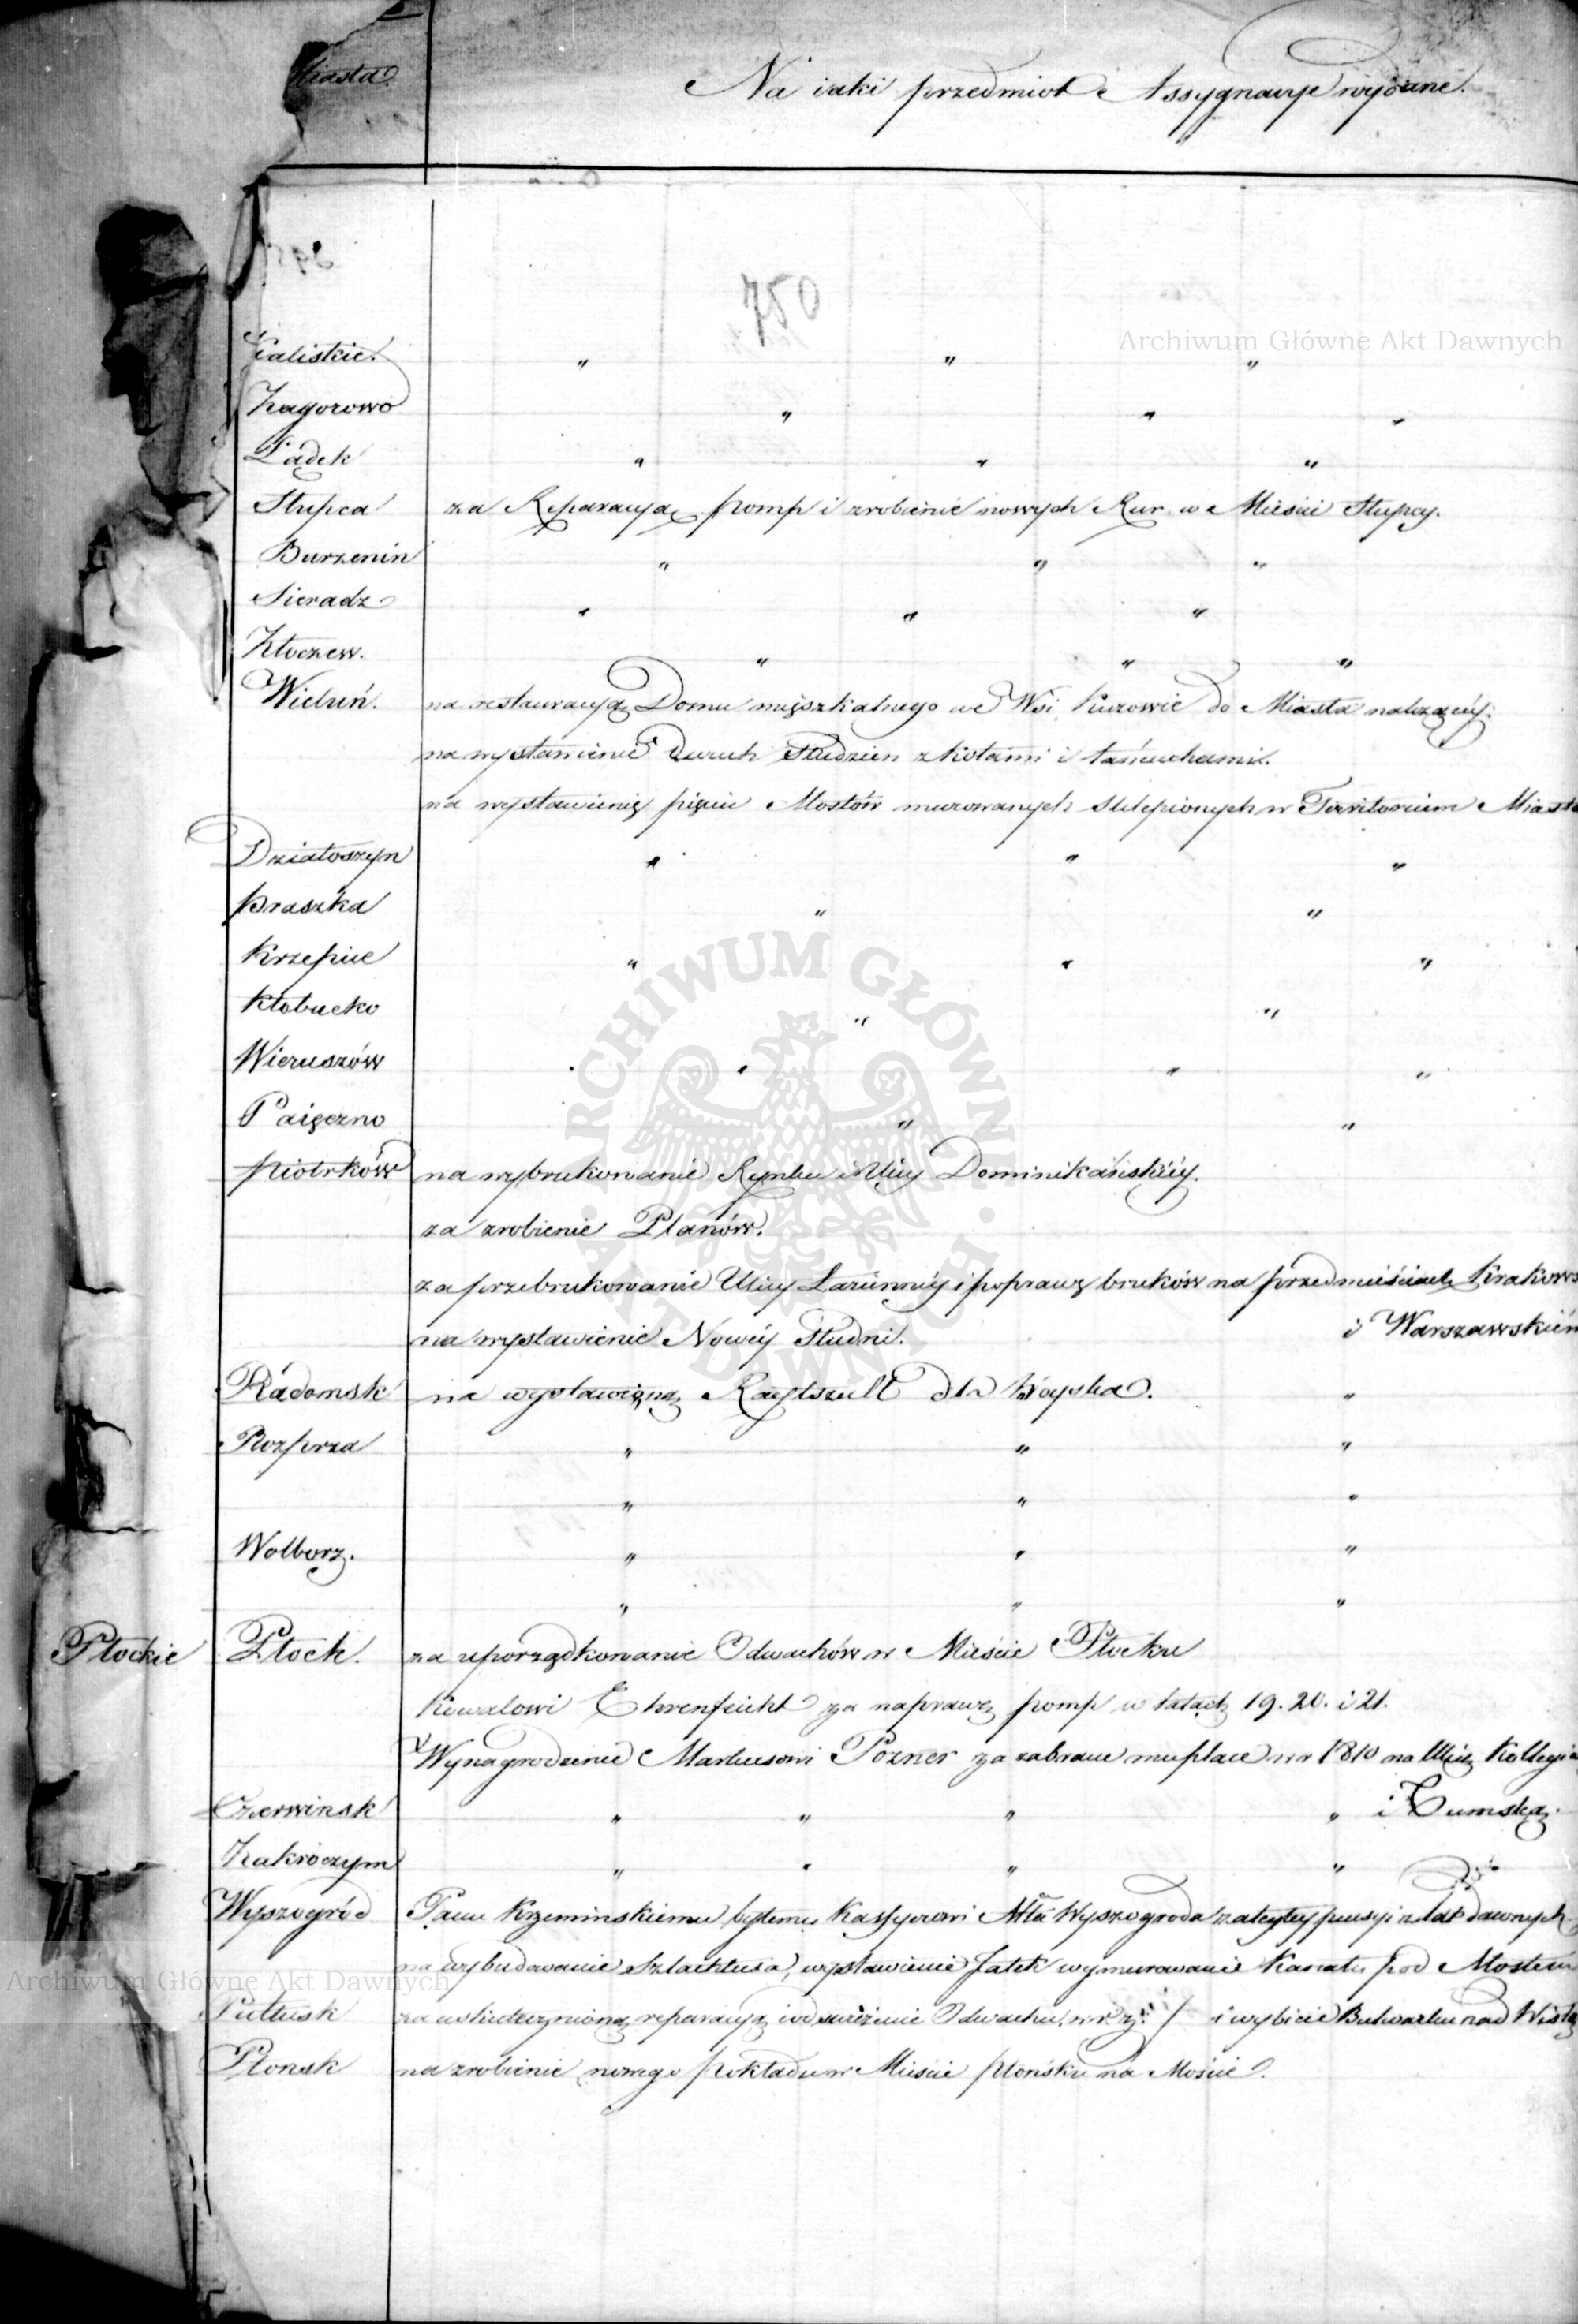 Miasta. Na iaki przedmiot Assygnacye wydane.
750
Archiwum Główne Akt Dawnych
Kaliskie. " " "
Zagorowo " " "
Lądek " " "
Słupca za Reparacyą pomp i zrobienie nowych Rur w Mieście Słupcy.
Burzenin " " "
Sieradz " " "
Złoczew. " " "
Wieluń. na restauracyą Domu mięszkalnego we Wsi do Miasta należącéy.
na wystawienie dwuch Studzien z kołami i łańcuchami.
na wystawienie pięciu Mostów murowanych sklepionych w Territorium Miasta
Działoszyn " " "
Praszka " "
Krzepice " " "
Kłobucko " "
Wieruszów " " "
Paięczno " "
Piotrków na wybrukowanie Rynku i Ulicy Dominikańskiéy.
za zrobienie Planów.
za przebrukowanie Ulicy Łaziennéy i poprawę bruków na przedmieściach Krakows
na wystawienie Nowéy Studni. i Warszawskiém
Radomsk na wystawioną Raytszull dla Woyska. "
Rozprza " " "
" " "
Wolborz. " " "
" " "
Płockie Płock. za uporządkowanie Odwachów w Mieście Płocku
Kowalowi Ehrenfeicht za naprawę pomp w latach 19. 20. i 21.
Wynagrodzenie Markusowi Pozner za zabrane mu place w r 1810 na Ulicę Kollegia
Czerwinsk " " " " i Tumską.
Zakroczym " " " "
Wyszogród Panu Krzeminskiemu byłemu Kassyerowi Mta Wyszogroda zaległey pensyi z lat dawnych.
na wybudowanie Szlachtuza, wystawienie Jatek wymurowanie Kanału pod Mostem
Archiwum Główne Akt Dawnych
Pułtusk za uskutecznioną reparacyą i odświeżenie Odwachu / i wybicie Bulwarku nad Wisłą
Płonsk na zrobienie nowego pokładu w Mieście Płońsku na Moście.
ARCHIWUM GŁÓWNE AKT DAWNYCH